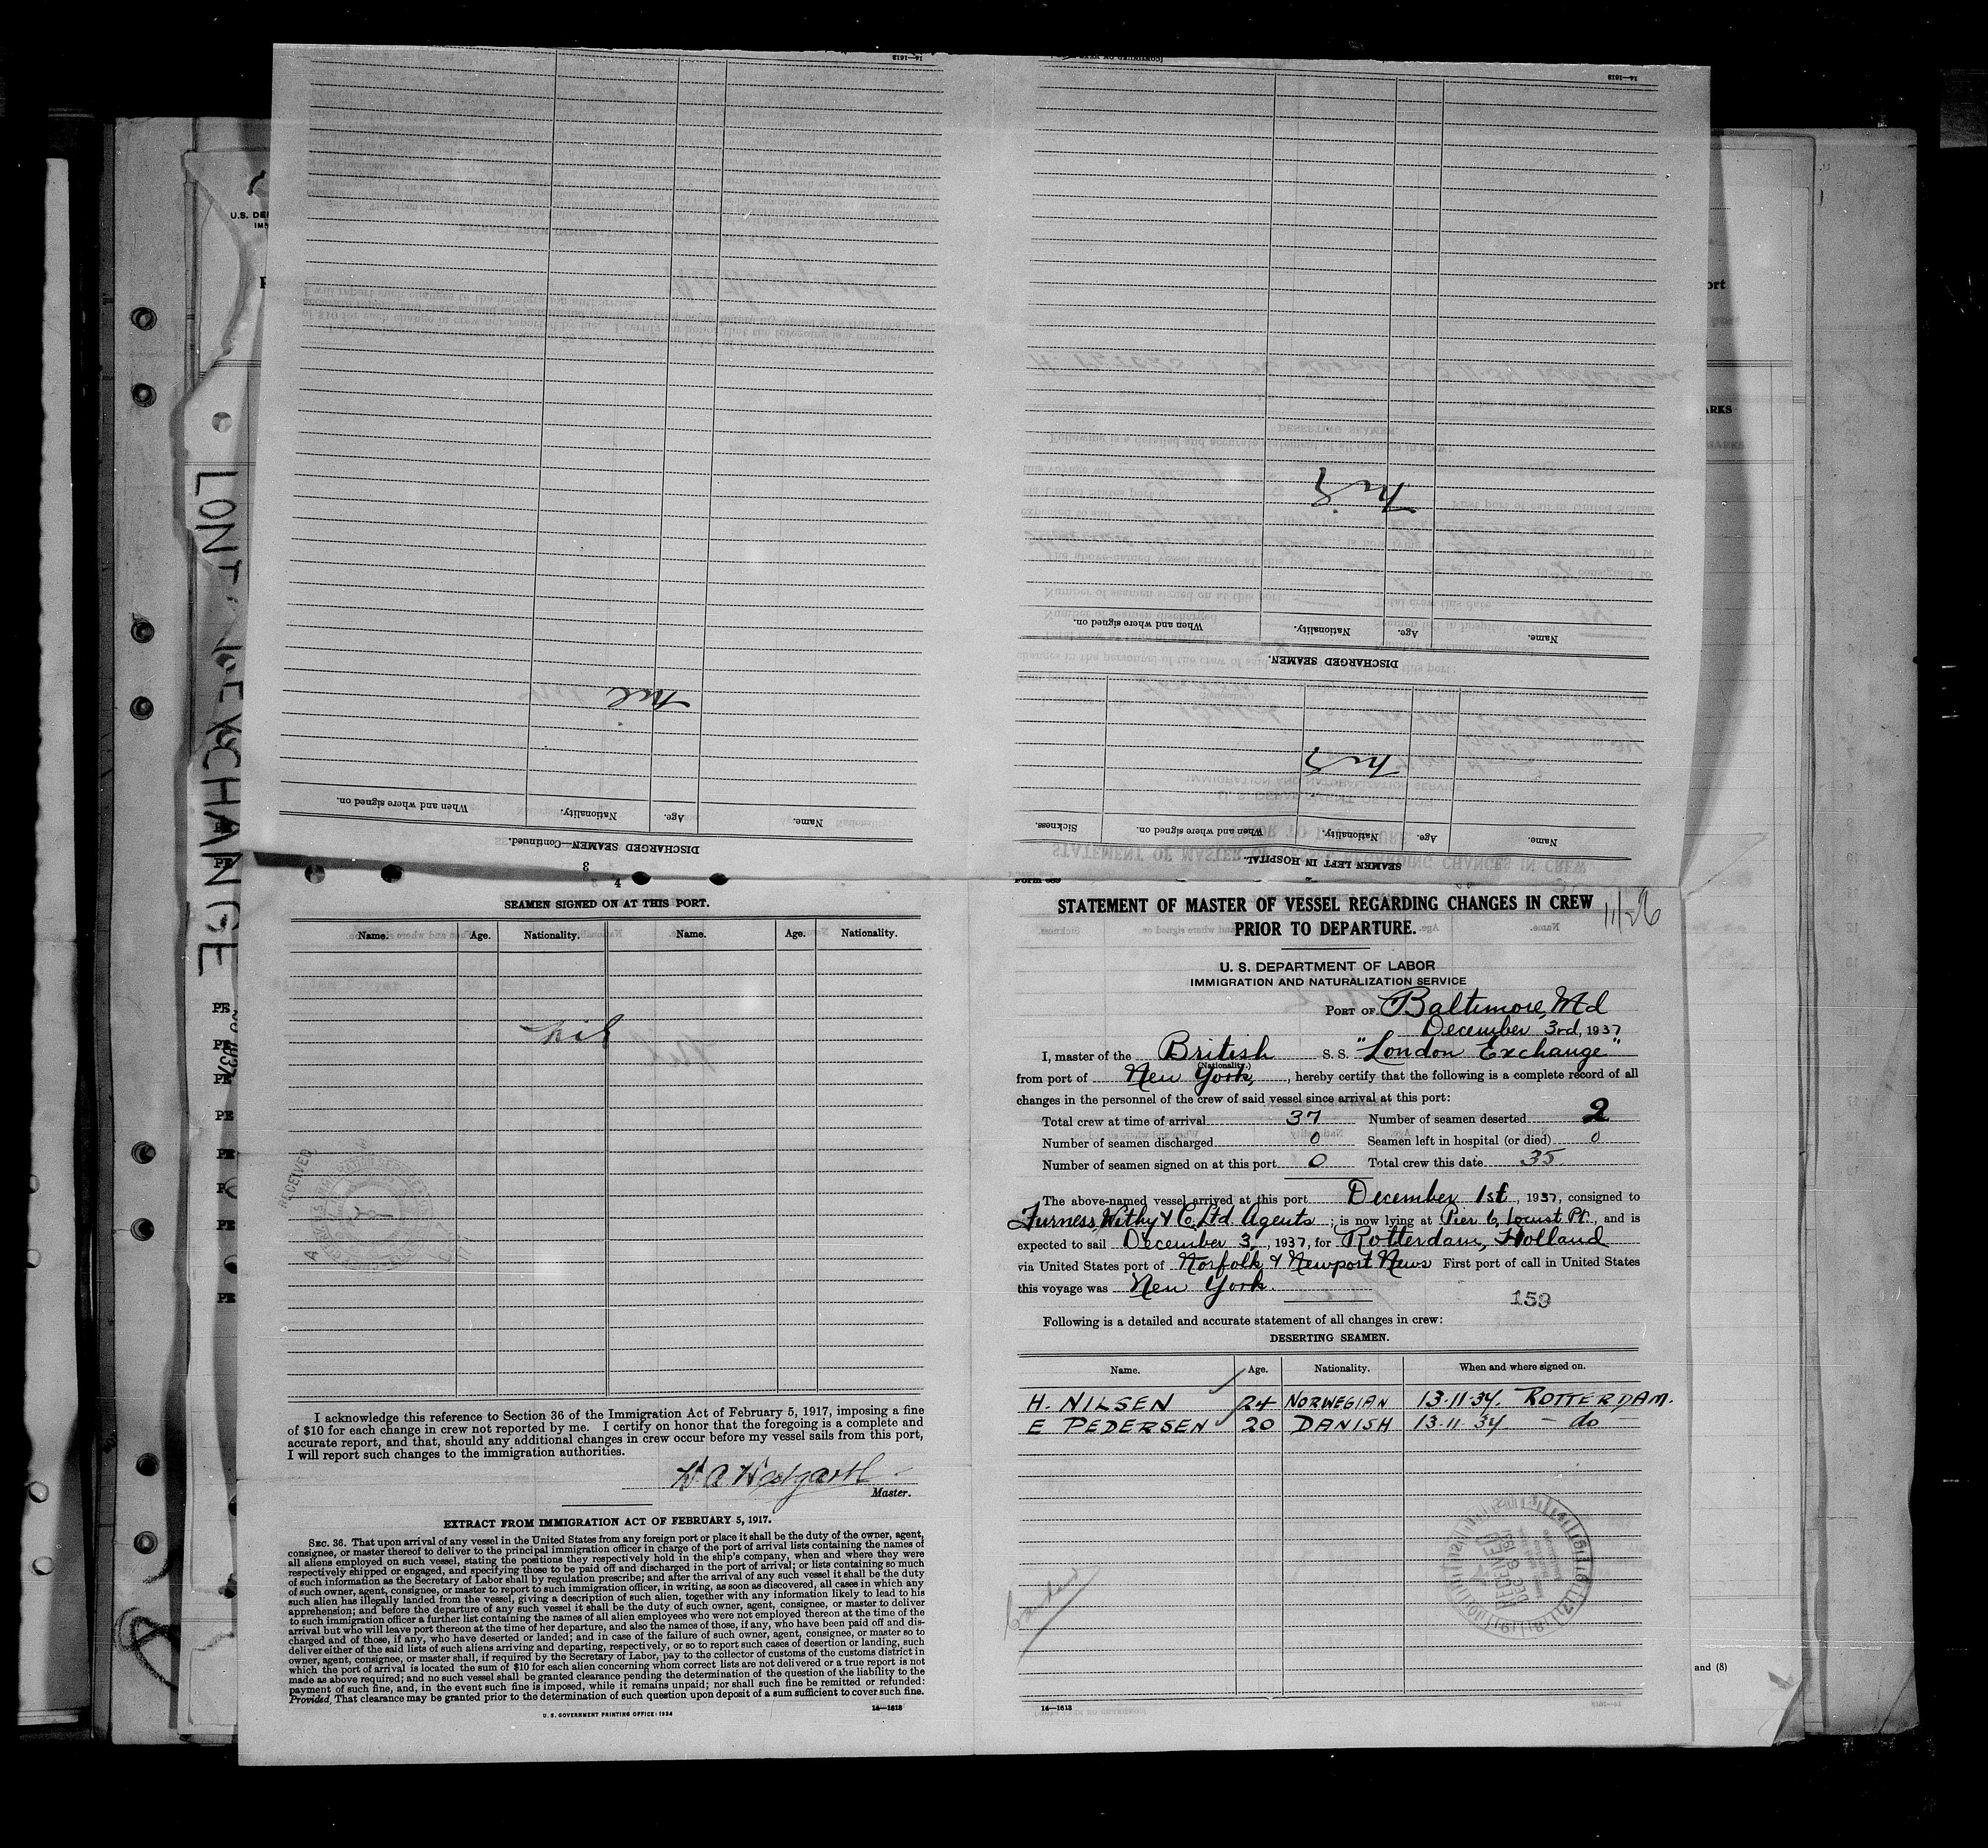 14—1613
14—1613
Name.
Age.
Nationality.
When and where signed on.
DISCHARGED SEAMEN—Continued.
nil
3
Nil
Name.
Age.
Nationality.
When and where signed on.
DISCHARGED SEAMEN.
Nil
Name.
Age.
Nationality.
When and where signed on.
Sickness.
SEAMEN LEFT IN HOSPITAL.
U.S. DE
LON
EXCHANGE
4
SEAMEN SIGNED ON AT THIS PORT.
Name. Age. Nationality. Name. Age. Nationality.
Nil
RECEIVED
I acknowledge this reference to Section 36 of the Immigration Act of February 5, 1917, imposing a fine
of $10 for each change in crew not reported by me. I certify on honor that the foregoing is a complete and
accurate report, and that, should any additional changes in crew occur before my vessel sails from this port,
I will report such changes to the immigration authorities.
W. A. Westgarth
Master.
EXTRACT FROM IMMIGRATION ACT OF FEBRUARY 5, 1917.
SEC. 36. That upon arrival of any vessel in the United States from any foreign port or place it shall be the duty of the owner, agent,
consignee, or master thereof to deliver to the principal immigration officer in charge of the port of arrival lists containing the names of
all aliens employed on such vessel, stating the positions they respectively hold in the ship's company, when and where they were
respectively shipped or engaged, and specifying those to be paid off and discharged in the port of arrival; or lists containing so much
of such information as the Secretary of Labor shall by regulation prescribe; and after the arrival of any such vessel it shall be the duty
of such owner, agent, consignee, or master to report to such immigration officer, in writing, as soon as discovered, all cases in which any
such alien has illegally landed from the vessel, giving a description of such alien, together with any information likely to lead to his
apprehension; and before the departure of any such vessel it shall be the duty of such owner, agent, consignee, or master to deliver
to such immigration officer a further list containing the names of all alien employees who were not employed thereon at the time of the
arrival but who will leave port thereon at the time of her departure, and also the names of those, if any, who have been paid off and dis-
charged and of those, if any, who have deserted or landed; and in case of the failure of such owner, agent, consignee, or master so to
deliver either of the said lists of such aliens arriving and departing, respectively, or so to report such cases of desertion or landing, such
owner, agent, consignee, or master shall, if required by the Secretary of Labor, pay to the collector of customs of the customs district in
which the port of arrival is located the sum of $10 for each alien concerning whom correct lists are not delivered or a true report is not
made as above required; and no such vessel shall be granted clearance pending the determination of the question of the liability to the
payment of such fine, and, in the event such fine is imposed, while it remains unpaid; nor shall such fine be remitted or refunded:
Provided, That clearance may be granted prior to the determination of such question upon deposit of a sum sufficient to cover such fine.
U. S. GOVERNMENT PRINTING OFFICE: 1934
14—1613
Form 689
STATEMENT OF MASTER OF VESSEL REGARDING CHANGES IN CREW
PRIOR TO DEPARTURE.
11/26
U. S. DEPARTMENT OF LABOR
IMMIGRATION AND NATURALIZATION SERVICE
PORT OF Baltimore, Md
December 3rd, 1937
I, master of the British S. S. "London Exchange"
(Nationality.)
from port of New York, hereby certify that the following is a complete record of all
changes in the personnel of the crew of said vessel since arrival at this port:
Total crew at time of arrival 37 Number of seamen deserted 2
Number of seamen discharged 0 Seamen left in hospital (or died) 0
Number of seamen signed on at this port 0 Total crew this date 35
The above-named vessel arrived at this port December 1st, 1937, consigned to
Furness, Withy & Co. Ltd. Agents; is now lying at Pier 6, Locust Pt., and is
expected to sail December 3, 1937, for Rotterdam, Holland
via United States port of Norfolk & Newport News First port of call in United States
this voyage was New York.
159
Following is a detailed and accurate statement of all changes in crew:
DESERTING SEAMEN.
Name. Age. Nationality. When and where signed on.
H. NILSEN 24 NORWEGIAN 13·11·34. ROTTERDAM.
E PEDERSEN 20 DANISH 13·11·34. — do —
RECEIVED
DEC 6 1937
14—1613
and (8)